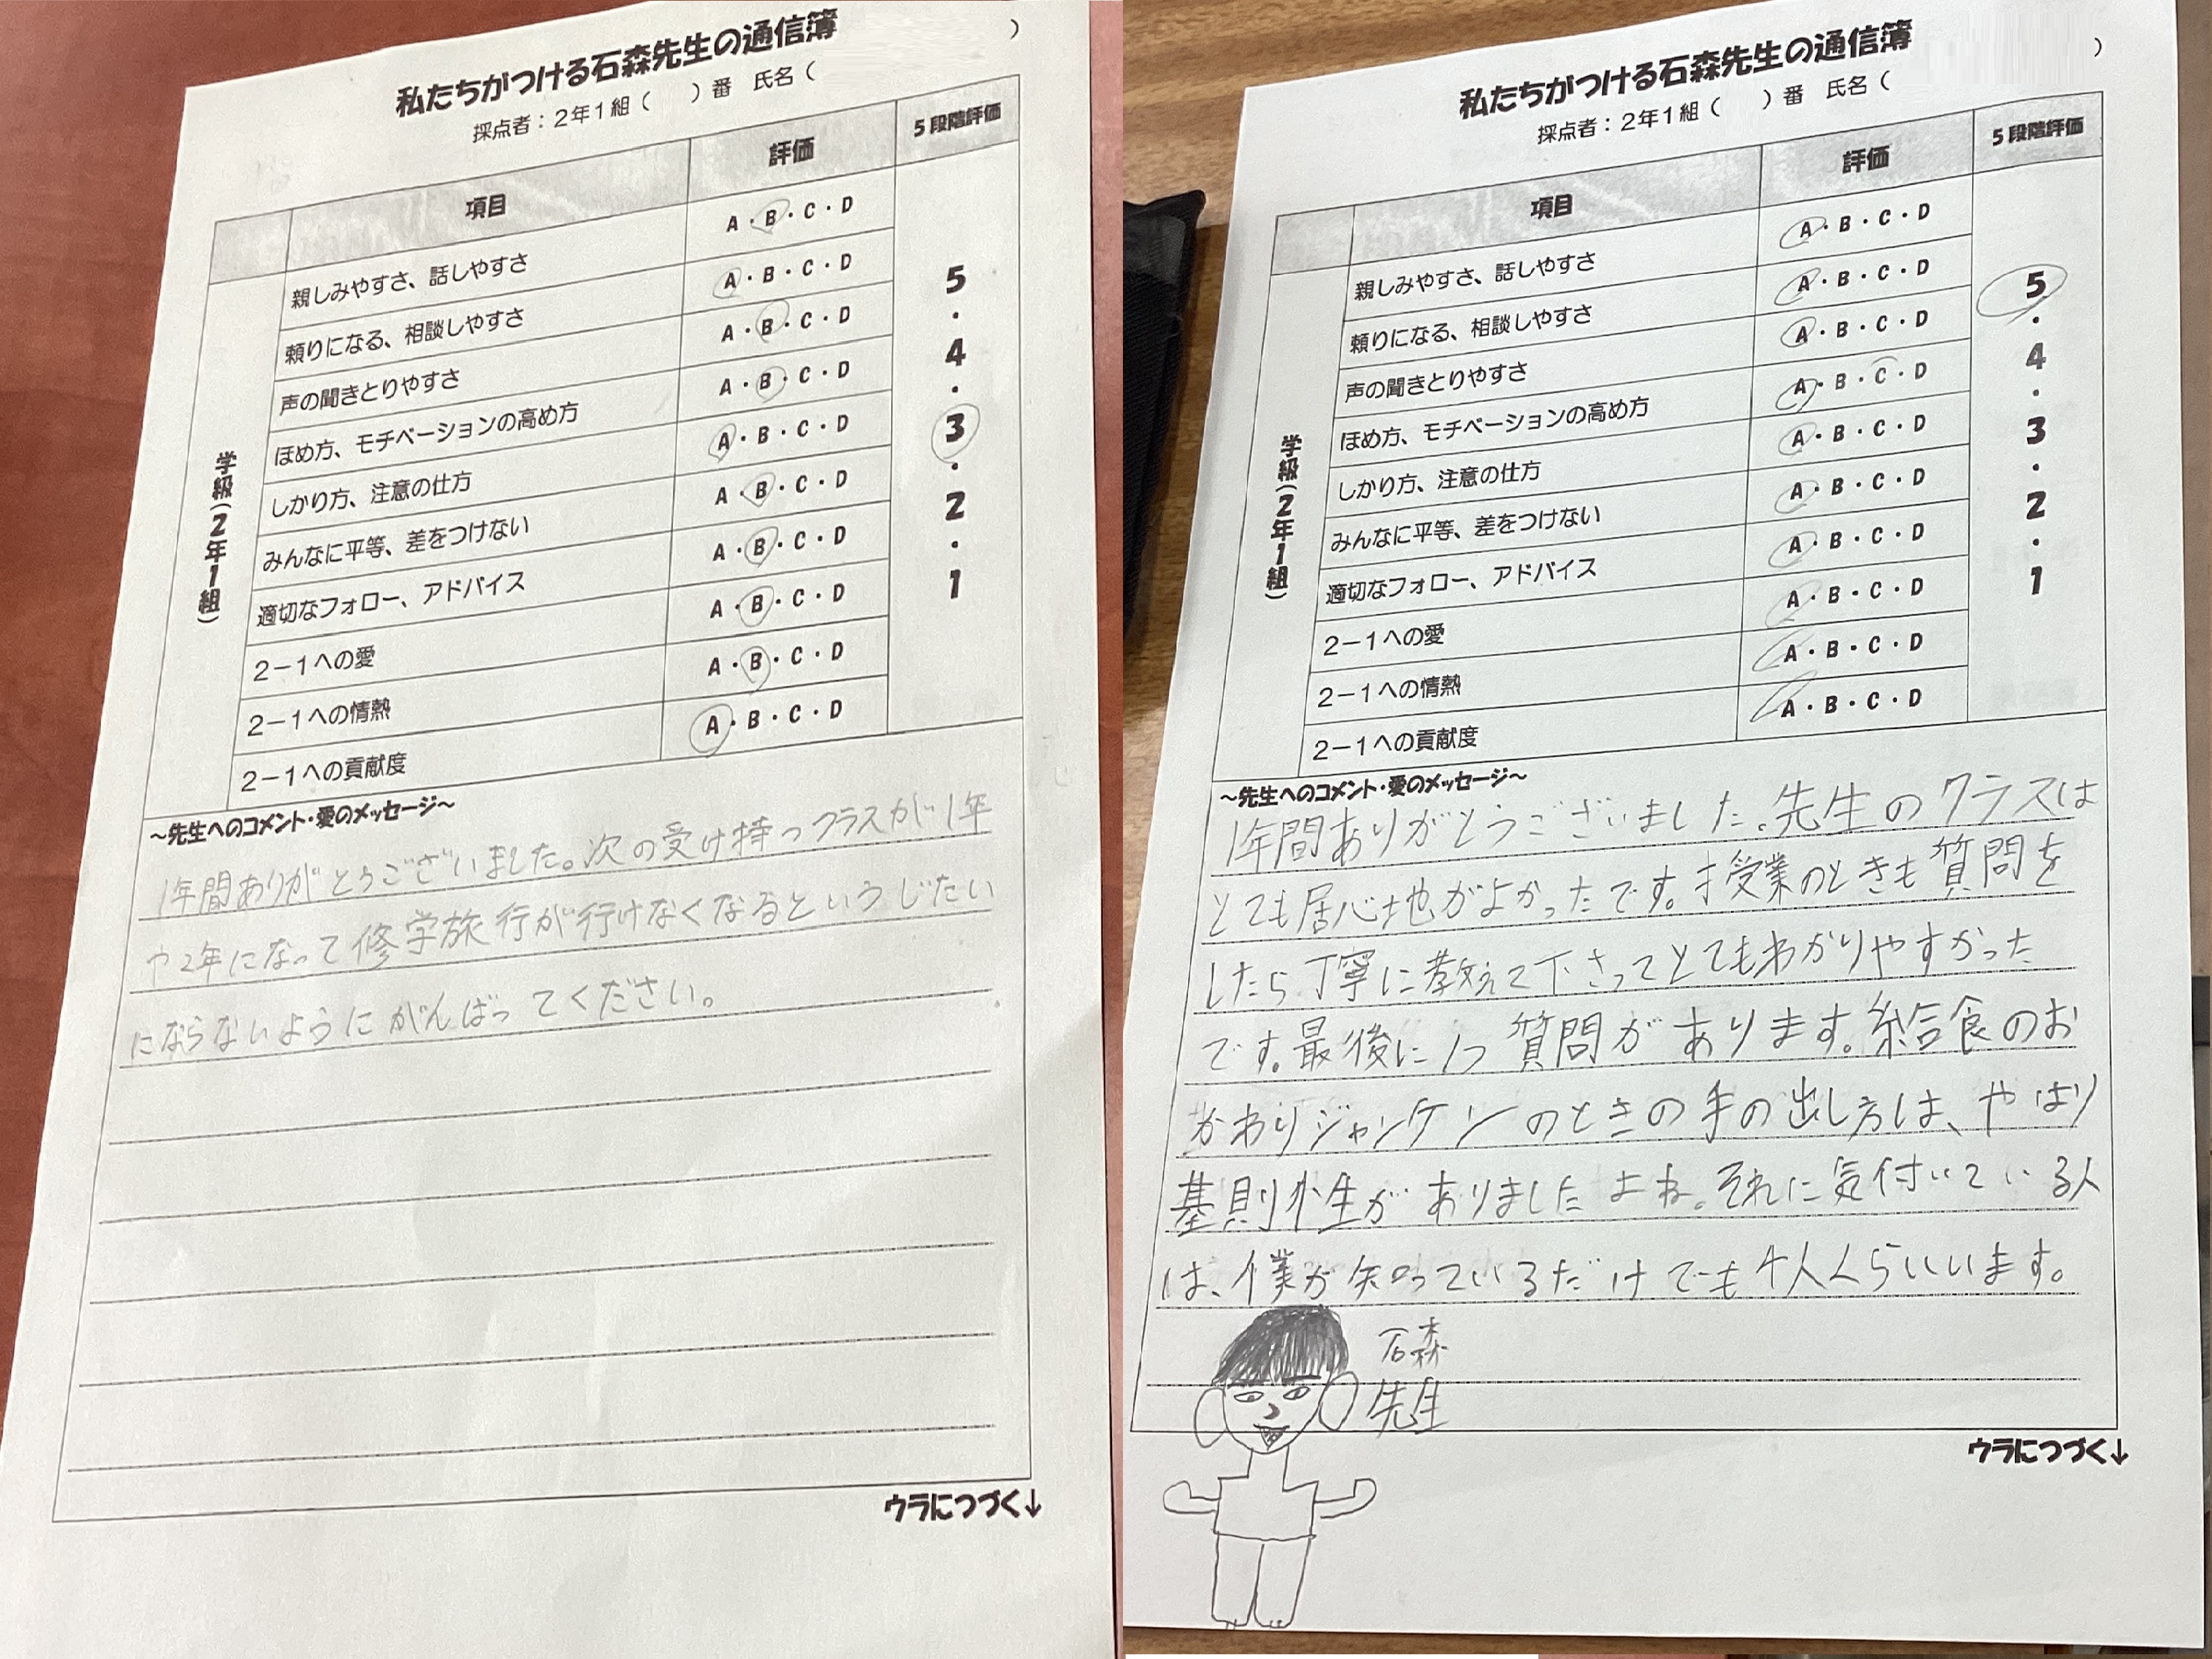 私たちがつける石森先生の通信簿
採点者：2年1組（　　）番　氏名（　　　）
項目　評価　5段階評価
学級（2年1組）
親しみやすさ、話しやすさ　A・B・C・D
頼りになる、相談しやすさ　A・B・C・D
声の聞きとりやすさ　A・B・C・D
ほめ方、モチベーションの高め方　A・B・C・D
しかり方、注意の仕方　A・B・C・D
みんなに平等、差をつけない　A・B・C・D
適切なフォロー、アドバイス　A・B・C・D
2－1への愛　A・B・C・D
2－1への情熱　A・B・C・D
2－1への貢献度　A・B・C・D
5・4・3・2・1
～先生へのコメント・愛のメッセージ～
1年間ありがとうございました。次の受け持つクラスが1年
や2年になって修学旅行が行けなくなるというじたい
にならないようにがんばってください。
ウラにつづく↓
私たちがつける石森先生の通信簿
採点者：2年1組（　　）番　氏名（　　　）
項目　評価　5段階評価
学級（2年1組）
親しみやすさ、話しやすさ　A・B・C・D
頼りになる、相談しやすさ　A・B・C・D
声の聞きとりやすさ　A・B・C・D
ほめ方、モチベーションの高め方　A・B・C・D
しかり方、注意の仕方　A・B・C・D
みんなに平等、差をつけない　A・B・C・D
適切なフォロー、アドバイス　A・B・C・D
2－1への愛　A・B・C・D
2－1への情熱　A・B・C・D
2－1への貢献度　A・B・C・D
5・4・3・2・1
～先生へのコメント・愛のメッセージ～
1年間ありがとうございました。先生のクラスは
とても居心地がよかったです。授業のときも質問を
したら丁寧に教えて下さってとてもわかりやすかった
です。最後に1つ質問があります。給食のお
かわりジャンケンのときの手の出し方は、やはり
基則性がありましたよね。それに気付いている人
は、僕が知っているだけでも4人くらいいます。
石森
先生
ウラにつづく↓